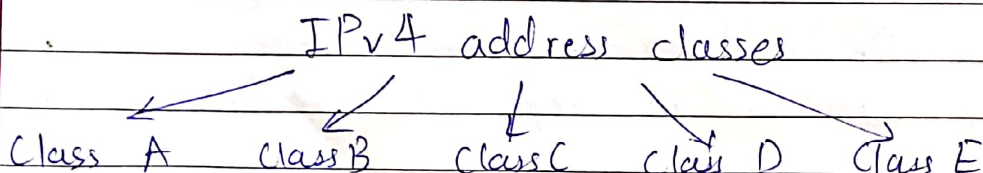 IPv4 address classes
Class A Class B Class C Class D Class E